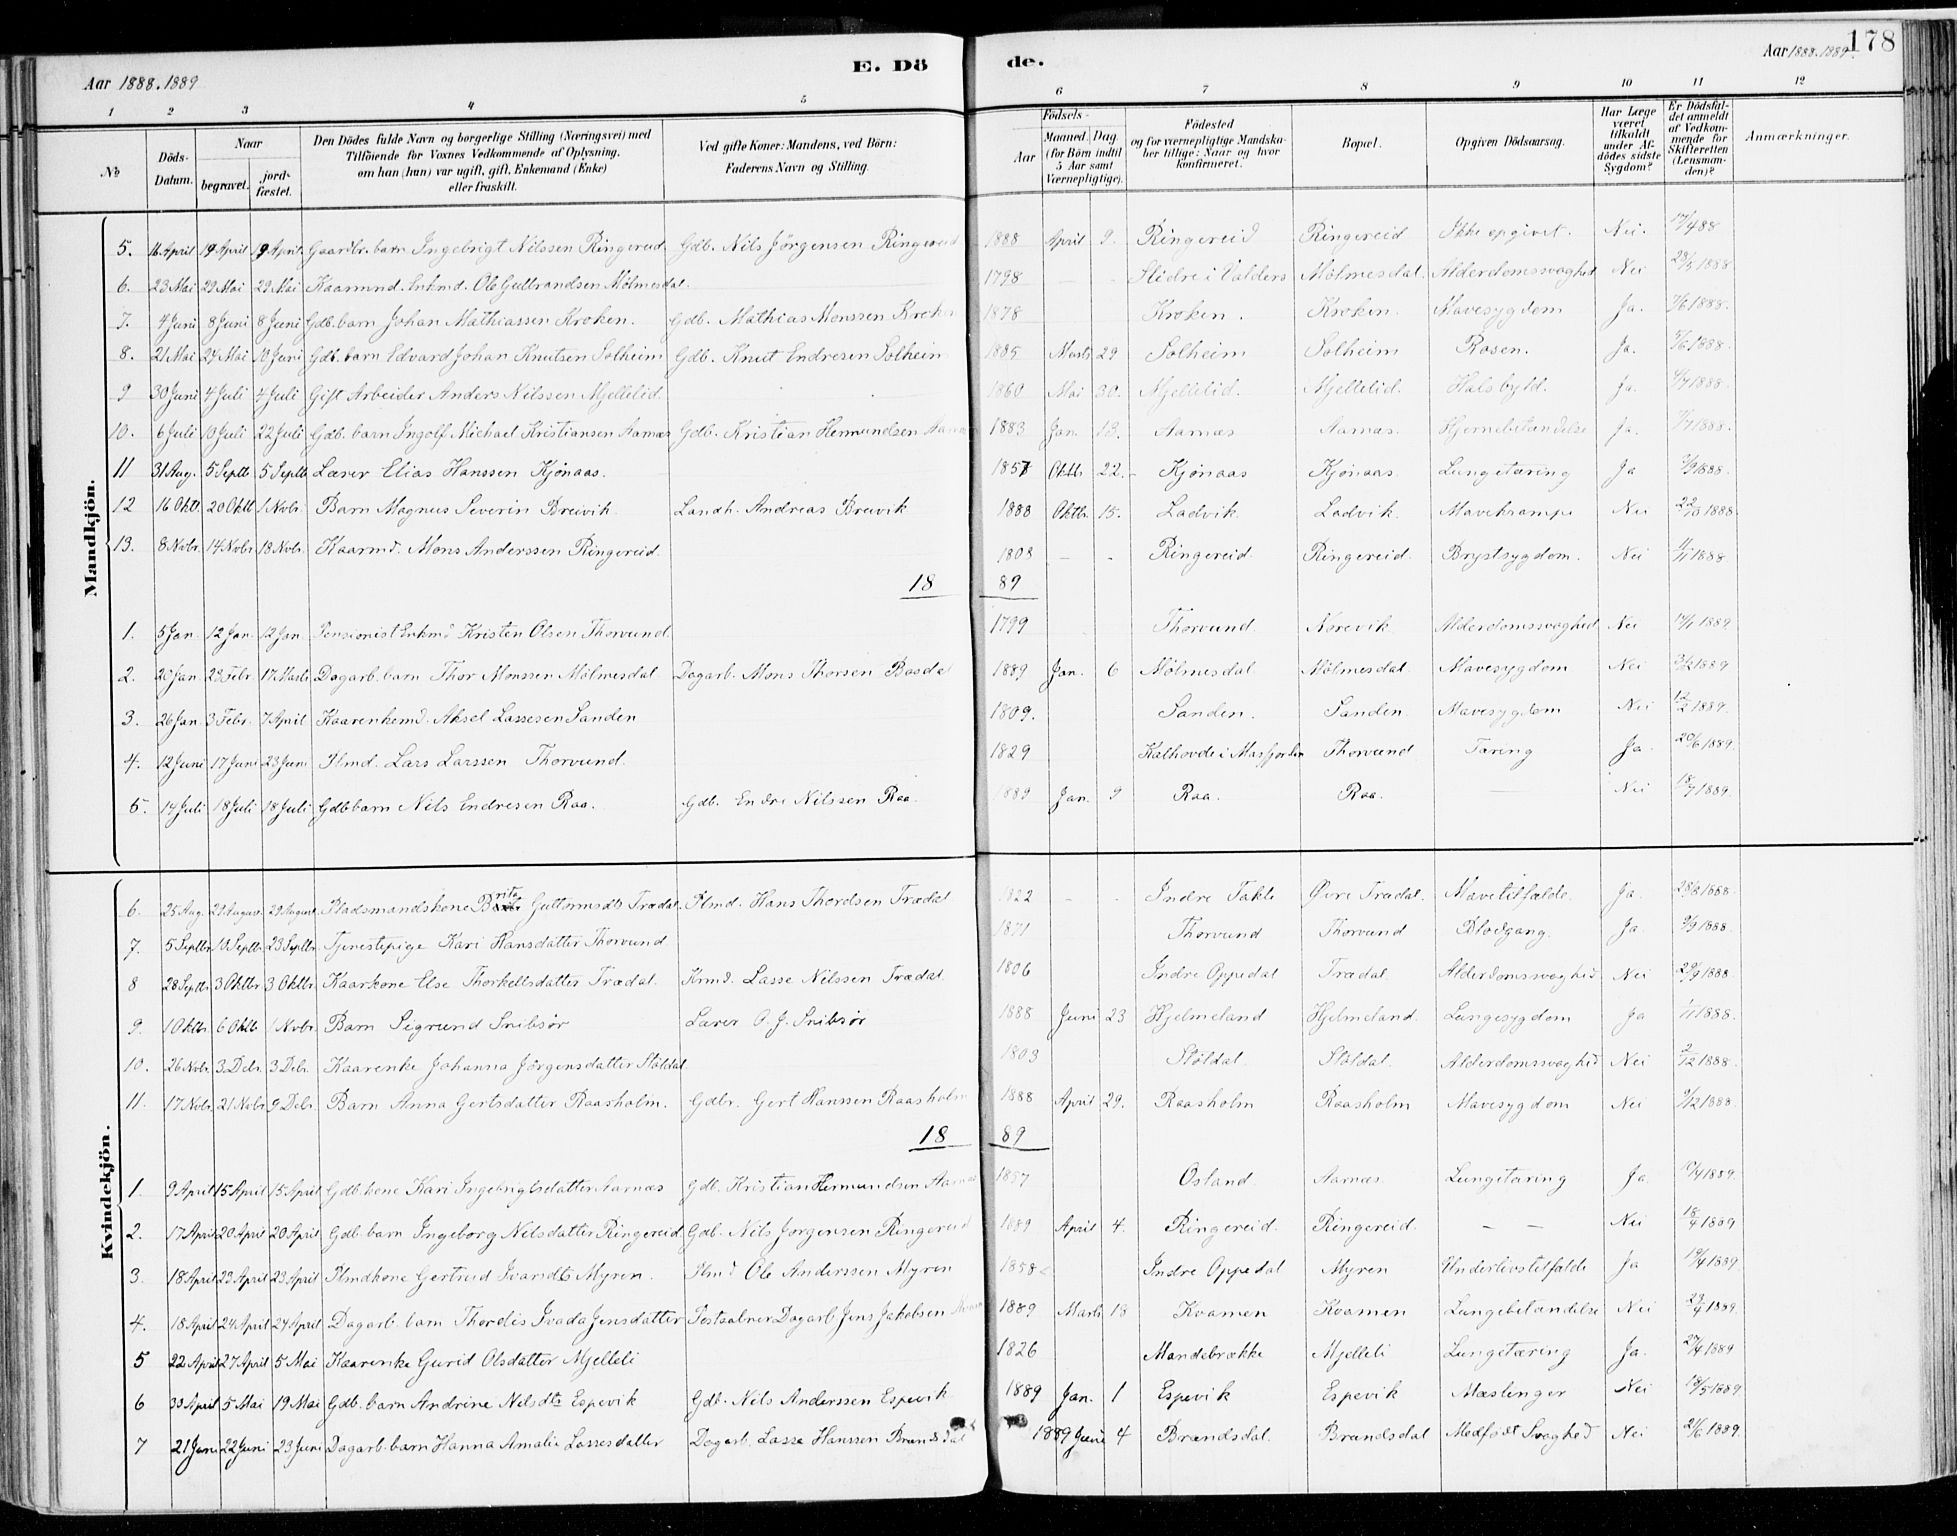 Aar 1888.1889 E. Dö de. Aar 1888.1889. 178
1 2 3 4 5 6 7 8 9 10 11 12
No
Döds-Datum.
Naar
begravet.
jord-fæstet.
Den Dödes fulde Navn og borgerlige Stilling (Næringsvei) med
Tilföiende for Voxnes Vedkommende af Oplysning,
om han (hun) var ugift, gift, Enkemand (Enke)
eller fraskilt.
Ved gifte Koner: Mandens, ved Börn:
Faderens Navn og Stilling.
Födsels-
Aar
Maaned. Dag.
(for Börn indtil
5 Aar samt
Værnepligtige).
Födested
og for værnepligtige Mandska-
ber tillige: Naar og hvor
konfirmeret.
Bopæl.
Opgiven Dödsaarsag.
Har Læge
været
tilkaldt
under Af-
dödes sidste
Sygdom?
Er Dödsfal-
det anmeldt
af Vedkom-
mende for
Skifteretten
(Lensman-
den)?
Anmærkninger.
Mandkjön.
5. 16 April 19 April 19 April Gaardbr. barn Ingebrigt Nilssen Ringereid Gdb. Nils Jörgensen Ringereid 1888 April 9. Ringereid Ringereid Ikke opgivet. Nei. 17/4 88
6. 23 Mai 29 Mai 29 Mai Kaarmd. Enkmd. Ole Gulbrandsen Mölmesdal. 1798 – - Slidre i Valders Mölmesdal. Alderdomssvaghed Nei 28/5 1888
7. 4 Juni 8 Juni 8 Juni Gdb. barn Johan Mathiassen Kroken. Gdb. Mathias Monssen Kroken 1878 Kroken. Kroken. Mavesygdom Ja. /6 1888.
8. 21 Mai 27 Mai 10 Juni Gdb. barn Edvard Johan Knutsen Solheim Gdb. Knut Endresen Solheim 1885 Marts 29 Solheim Solheim Rosen. Ja. 5/6 1888.
9 30 Juni 4 Juli 4 Juli Gift Arbeider Anders Nilssen Mjellelid. 1860 Mai 30. Mjellelid. Mjellelid. Halsbyld. Ja. 4/7 1888.
10. 6 Juli 10 Juli 22 Juli Gdb. barn Ingolf Michael Kristiansen Aarnæs Gdb. Kristian Hermundsen Aarnæs 1883 Jan. 13. Aarnæs Aarnæs. Hjernebetændelse Ja. /7 1888.
11 31 Aug. 5 Septb 5 Septb Lærer Elias Hanssen Kjönaas. 1857 Oktb. 22. Kjönaas Kjönaas. Lungetæring Ja /9 1888.
12 16 Oktb. 20 Oktb 1 Novbr. Barn Magnus Severin Breivik. Landh. Andreas Breivik 1888 Oktbr. 15. Ladvik. Ladvik. Mavekrampe Nei 22/10 1888.
13. 8 Novbr. 14 Novbr. 18 Novbr. Kaarmd. Mons Anderssen Ringereid. 1808 – - Ringereid. Ringereid. Brystsygdom. Nei /11 1888
18 89
1. 5 Jan. 12 Jan. 12 Jan. Pensionist Enkmd Kristen Olsen Thorvund. 1799 Thorvund. Norevik Alderdomssvaghed Nei 14/1 1889
2. 20 Jan. 23 Febr. 17 Marts Dagarb. barn Thor Monssen Mölmesdal. Dagarb. Mons Thorsen 1889 Jan. 6 Mölmesdal. Mölmesdal. Mavesygdom Nei /2 1889
3. 26 Jan 3 Febr. 7 April Kaarenkemd. Aksel Lassesen Sanden 1809. Sanden. Sanden Mavesygdom Nei 12/2 1889.
4. 12 Juni 17 Juni 23 Juni Plmd. Lars Larssen Thorvund. 1829 Kalhovde i Masfjorden Thorvund Tæring Ja. 20/6 1889.
5. 14 Juli 18 Juli 18 Juli Gdbbarn Nils Endresen Raa. Gdb. Endre Nilssen Raa. 1889 Jan. 9 Raa. Raa. — Nei 18/7 1889.
Kvindekjön.
6. 25 Aug. 29 August. 29 August Pladsmandskone Brita Guttormsdtr Trædal. Plmd. Hans Thordsen Trædal 1822 - - Indre Takle Övre Trædal. Mavetilfælde. Ja. 28/8 1888.
7. 5 Septbr. 10 Septb. 23 Septbr. Tjenestepige Kari Hansdatter Thorvund 1871 Thorvund Thorvund Blodgang. Ja /9 1888.
8 28 Septbr. 3 Oktbr 3 Oktbr. Kaarkone Else Thorkellsdatter Trædal. Krmd. Lasse Nilssen Trædal. 1806 Indre Oppedal Trædal. Alderdomssvaghed Nei 29/9 1888.
9. 1 Oktbr. 6 Oktb 1 Novbr. Barn Sigrund Snibsör Lærer O. J. Snibsör 1888 Juni 23 Hjelmeland Hjelmeland. Lungesygdom Ja 1/11 1888.
10. 26 Novbr. 3 Debr. 3 Debr. Kaarenke Johanna Jörgensdatter Stöldal. 1803 Stöldal. Stöldal. Alderdomssvaghed Nei 2/12 1888.
11. 17 Novbr. 21 Novbr 9 Debr. Barn Anna Gertsdatter Raasholm. Gdbr. Gert Hanssen Raasholm 1888 April 29. Raasholm Raasholm Mavesygdom Nei /12 1888.
18 89
1. 9 April 15 April 15 April Gdb. kone Kari Ingebrigtsdatter Aarnæs Gdb. Kristian Hermundsen Aarnæs 1857 Osland. Aarnæs. Lungetæring Ja. /4 1889.
2. 17 April 20 April 20 April Gdb. barn Ingeborg Nilsdatter Ringereid. Gdb. Nils Jörgensen Ringereid 1889 April 4. Ringereid. Ringereid. – – Nei 18/4 1889
3. 18 April 23 April 23 April Plmdkone Gertrud Ivarsdtr Myren. Plmd Ole Anderssen Myren 1858 Indre Oppedal Myren Underlivstilfælde Ja 19/4 1889.
4. 18 April 24 April 24 April Dagarb. barn Thordis Jensdatter Dagarb. Jens Jakobsen 1889 Marts 18 Kvamen Kvamen Lungebetændelse Nei 23/4 1889.
5 22 April 27 April 5 Mai Kaarenke Gurid Olsdatter Mjelleli 1826 Mandebrække Mjelleli Lungetæring Ja. 27/4 1889
6 30 April 5 Mai 19 Mai Gdb. barn Andrine Nilsdtr Espevik Gdb. Nils Anderssen Espevik 1889 Jan. 1 Espevik Espevik Mæslinger Nei /5 1889
7 21 Juni 22 Juni 23 Juni Dagarb. barn Hanna Amalie Lassesdatter Dagarb. Lasse Hanssen Brandsdal 1889 Juni 4 Brændsdal. Brandsdal Medfödt Svaghed Nei 21/6 1889.